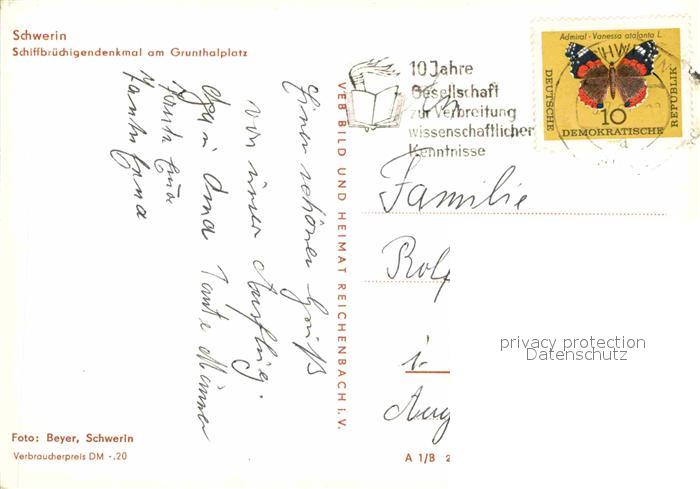 Schwerin
Schiffbrüchigendenkmal am Grunthalplatz
Einen schönen Gruß
von unserem Ausflug.
Opa u. Oma Tante Minna
Tante
Tante Erna
VEB BILD UND HEIMAT REICHENBACH i. V.
10 Jahre
Gesellschaft
zur Verbreitung
wissenschaftlicher
Kenntnisse
Admiral - Vanessa atalanta L.
DEUTSCHE
10
DEMOKRATISCHE
REPUBLIK
An
Familie
Rolf
i.
privacy protection
Datenschutz
Foto: Beyer, Schwerin
Verbraucherpreis DM -.20
A 1/B 2